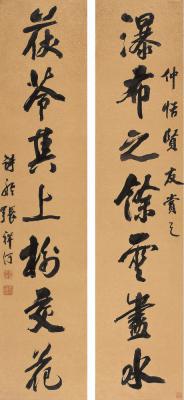 瀑布之餘雲盡水
仲恬賢友賞之
茯苓其上樹交花
詩舲張祥河